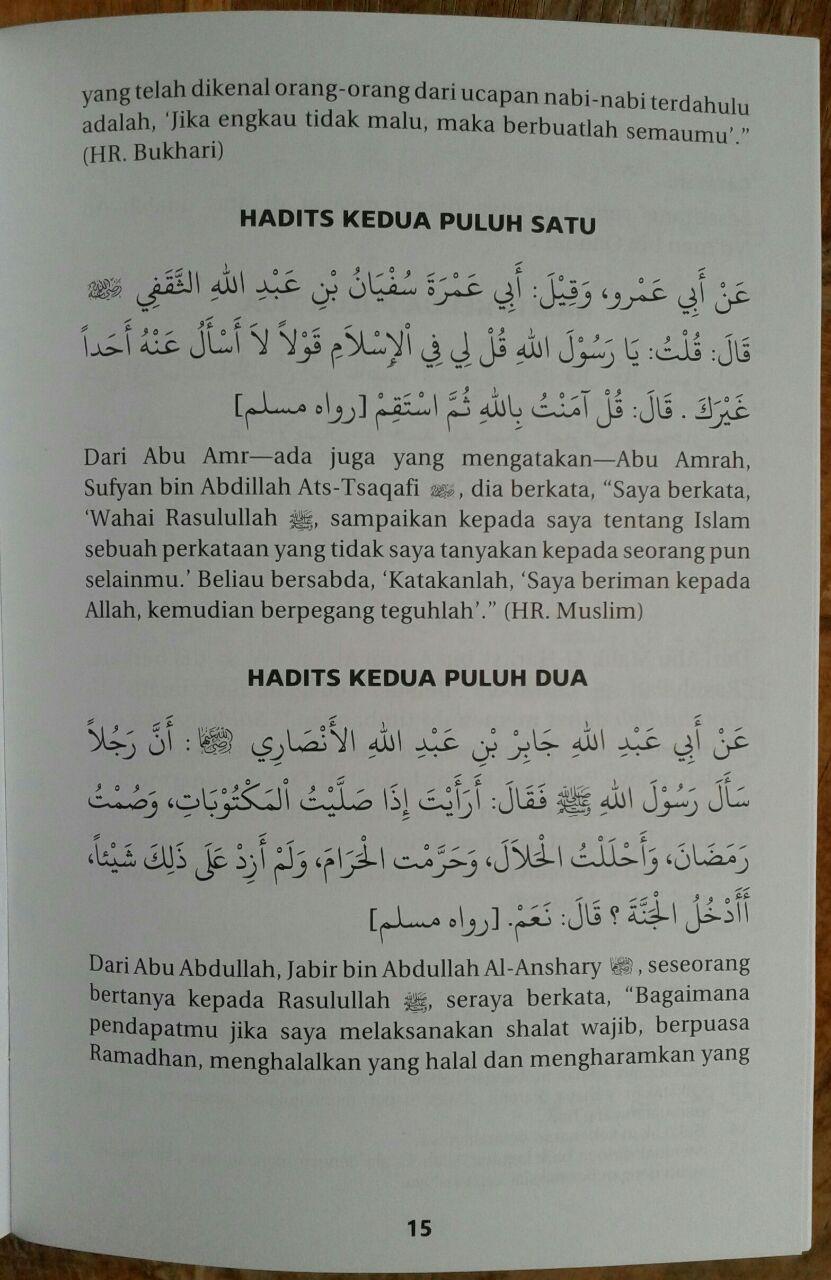 yang telah dikenal orang-orang dari ucapan nabi-nabi terdahulu
adalah, ‘Jika engkau tidak malu, maka berbuatlah semaumu’.”
(HR. Bukhari)
HADITS KEDUA PULUH SATU
عَنْ أَبِي عَمْرٍو، وَقِيْلَ: أَبِي عَمْرَةَ سُفْيَانُ بْنِ عَبْدِ اللهِ الثَّقَفِي ﵁
قَالَ: قُلْتُ: يَا رَسُوْلَ اللهِ قُلْ لِي فِي اْلإِسْلاَمِ قَوْلاً لاَ أَسْأَلُ عَنْهُ أَحَداً
غَيْرَكَ . قَالَ: قُلْ آمَنْتُ بِاللهِ ثُمَّ اسْتَقِمْ [رواه مسلم]
Dari Abu Amr—ada juga yang mengatakan—Abu Amrah,
Sufyan bin Abdillah Ats-Tsaqafi ﵁, dia berkata, “Saya berkata,
‘Wahai Rasulullah ﷺ, sampaikan kepada saya tentang Islam
sebuah perkataan yang tidak saya tanyakan kepada seorang pun
selainmu.’ Beliau bersabda, ‘Katakanlah, ‘Saya beriman kepada
Allah, kemudian berpegang teguhlah’.” (HR. Muslim)
HADITS KEDUA PULUH DUA
عَنْ أَبِي عَبْدِ اللهِ جَابِرْ بْنِ عَبْدِ اللهِ الأَنْصَارِي ﵄ : أَنَّ رَجُلاً
سَأَلَ رَسُوْلَ اللهِ ﷺ فَقَالَ: أَرَأَيْتَ إِذَا صَلَّيْتُ اْلمَكْتُوْبَاتِ، وَصُمْتُ
رَمَضَانَ، وَأَحْلَلْتُ الْحَلاَلَ، وَحَرَّمْت الْحَرَامَ، وَلَمْ أَزِدْ عَلَى ذَلِكَ شَيْئاً،
أَأَدْخُلُ الْجَنَّةَ ؟ قَالَ: نَعَمْ. [رواه مسلم]
Dari Abu Abdullah, Jabir bin Abdullah Al-Anshary ﵁, seseorang
bertanya kepada Rasulullah ﷺ, seraya berkata, “Bagaimana
pendapatmu jika saya melaksanakan shalat wajib, berpuasa
Ramadhan, menghalalkan yang halal dan mengharamkan yang
15